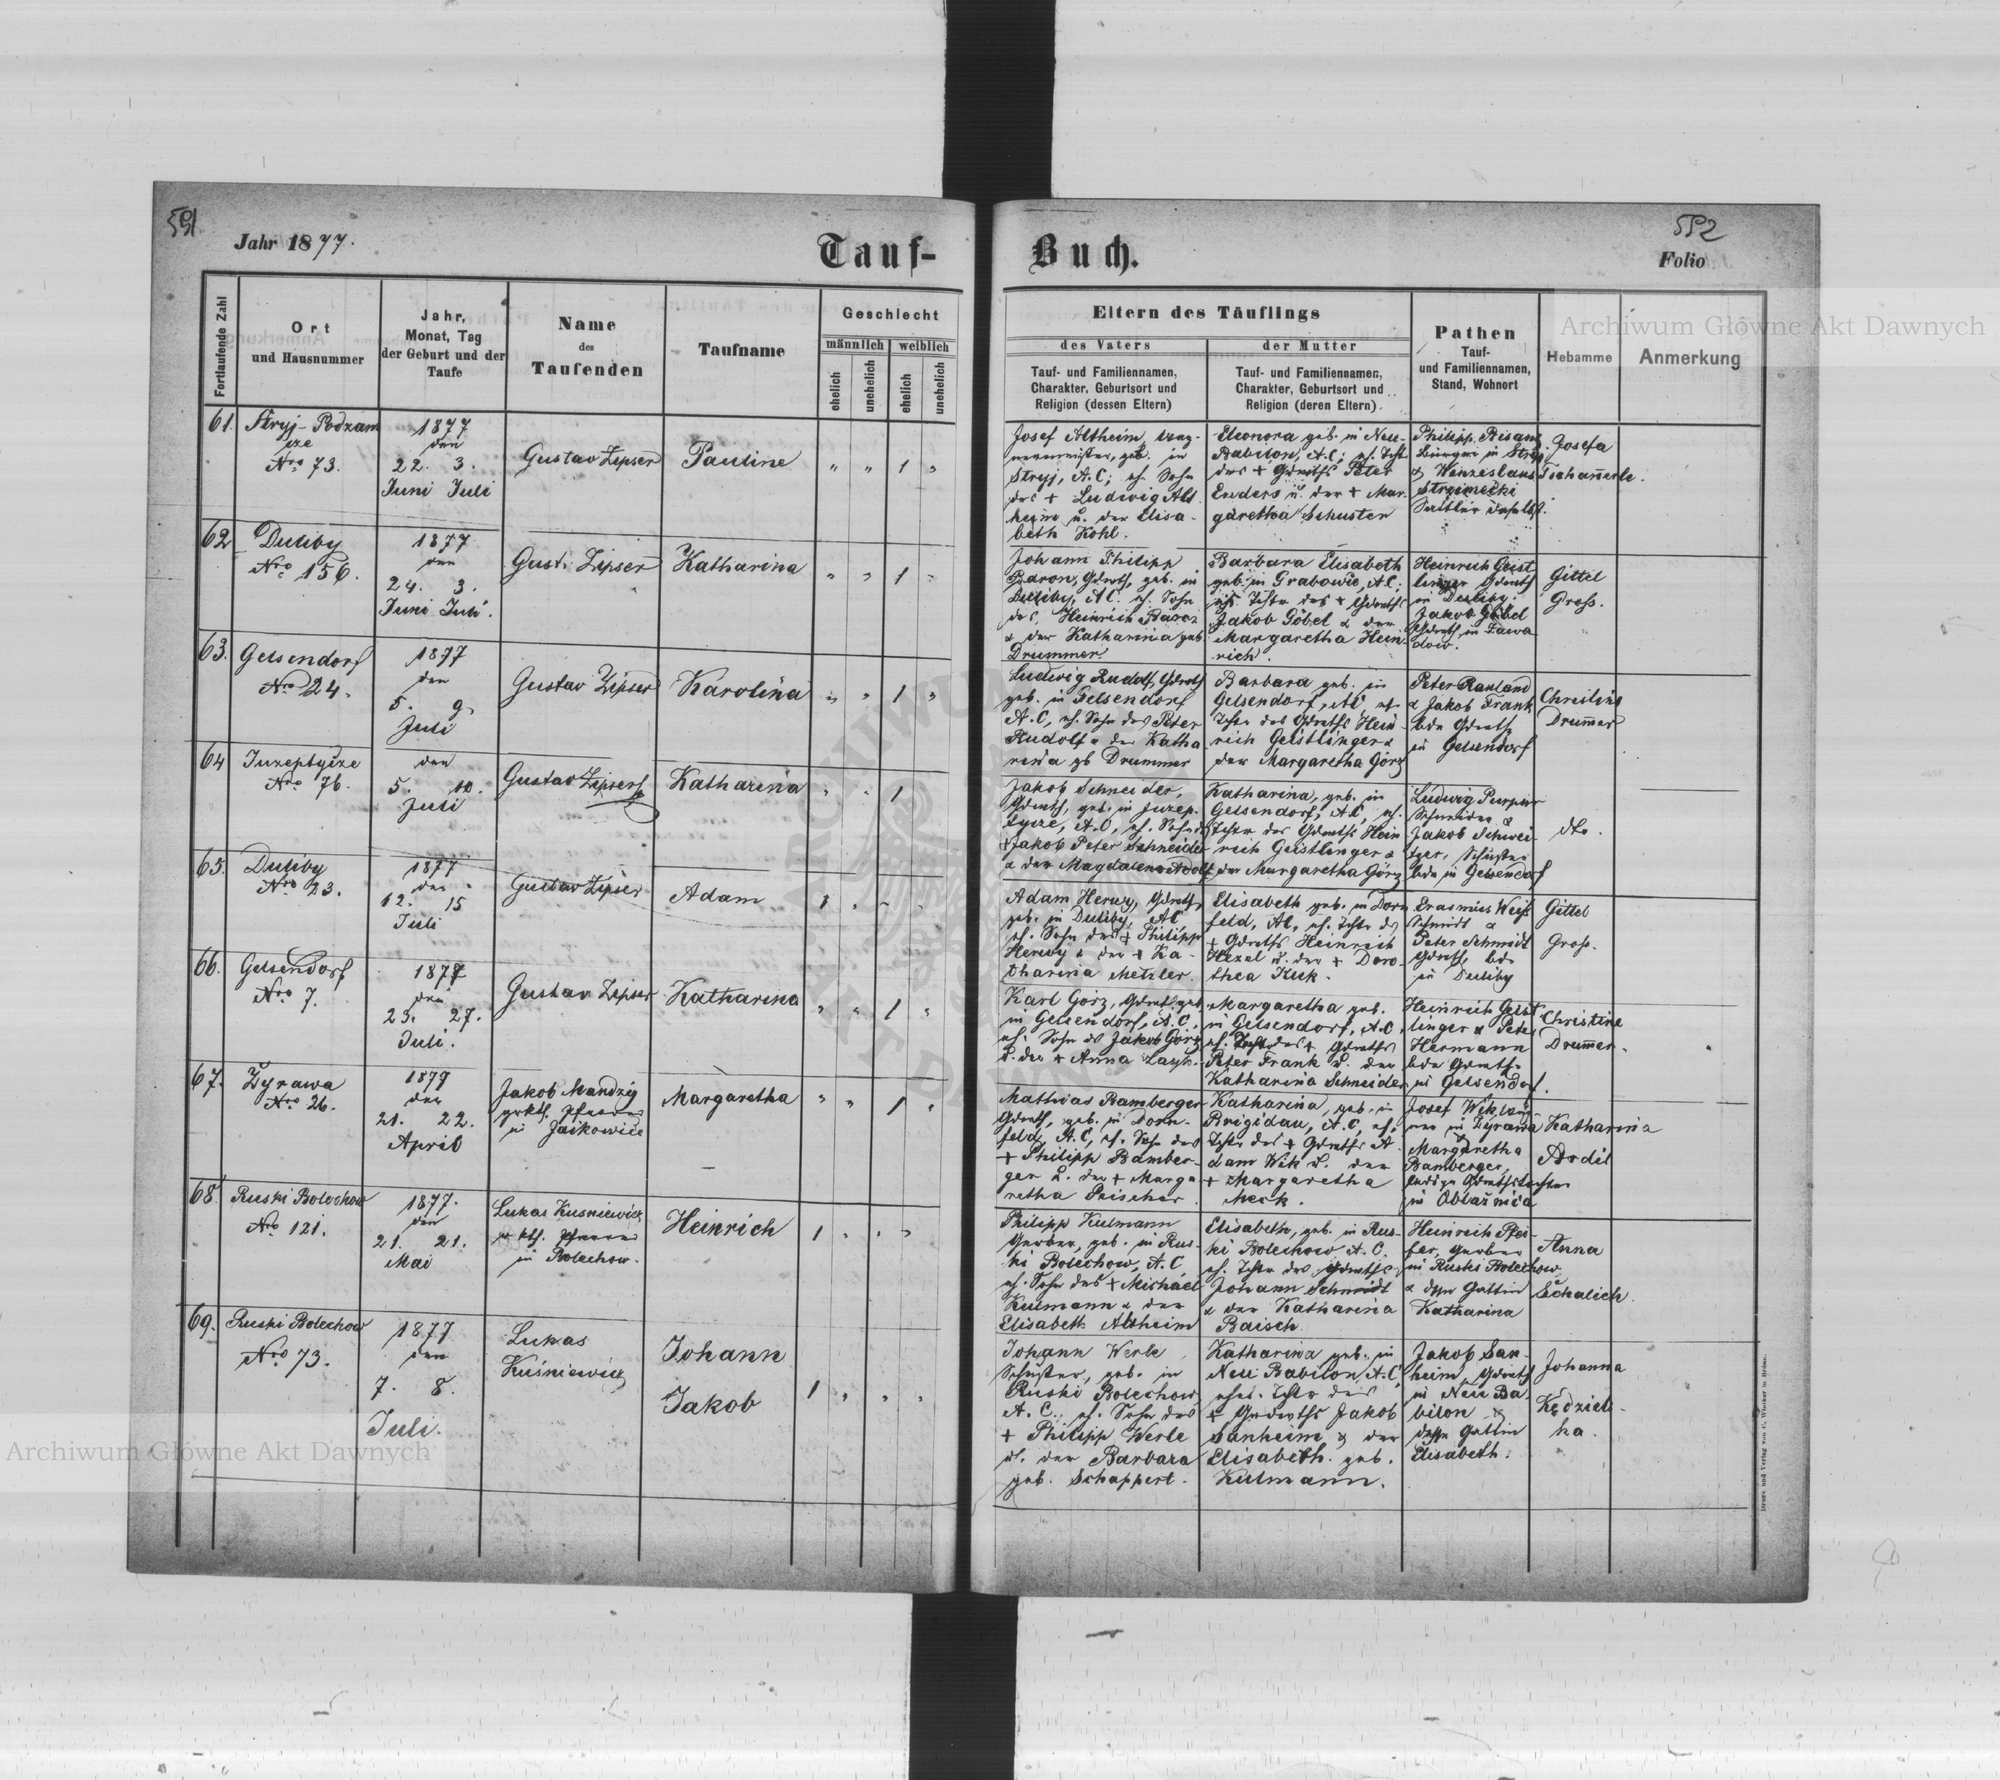 551
Jahr 1877.
Tauf-
Buch.
552
Folio
Fortlaufende Zahl
Ort
und Hausnummer
Jahr,
Monat, Tag
der Geburt und der
Taufe
Name
des
Taufenden
Taufname
Geschlecht
männlich weiblich
ehelich
unehelich
ehelich
unehelich
Eltern des Täuflings
des Vaters
Tauf- und Familiennamen,
Charakter, Geburtsort und
Religion (dessen Eltern)
der Mutter
Tauf- und Familiennamen,
Charakter, Geburtsort und
Religion (deren Eltern).
Pathen
Tauf-
und Familiennamen,
Stand, Wohnort
Hebamme
Anmerkung
61.
Stryj-Podzam
cze
Nro 73.
1877
den
22. 3.
Juni Juli
Gustav Zipser
Pauline
" " 1 "
Josef Altheim,
meister, geb. in
Stryj, A.C; eh. Sohn
des + Ludwig Alt
heim u. der Elisa-
beth Kohl.
Eleonora geb. in Neu-
Babilon, A.C; eh. Tcht
des + Gdrths Peter
Enders u. der + Mar-
garetha Schuster
Philipp Bisanz
in Stryj
& Wenzeslaus
Sattler daselbst.
Josefa
Tschamerle.
62
Duliby
Nro 156.
1877
den
24. 3.
Juni Juli.
Gust. Zipser
Katharina
" " 1 "
Johann Philipp
Baron, Gdrth, geb. in
Duliby, AC eh. Sohn
des Heinrich Baron
& der Katharina geb
Drummer.
Barbara Elisabeth
geb. in Grabowie, AC;
eh. Tchtr des + Gdrths
Jakob Göbel & der
Margaretha Hein-
rich.
Heinrich Geist
linger Gdrth
in Duliby.
Jakob Göbel
Gdrth in Zawa
dow.
Gittel
Gross.
63.
Gelsendorf
Nro 24.
1877
den
5. 9.
Juli
Gustav Zipser
Karolina
" " 1 "
Ludwig Rudolf, Gdrth
geb. in Gelsendorf
A.C, eh. Sohn des Peter
Rudolf & der Katha
rina gb Drummer
Barbara geb. in
Gelsendorf, AC eh.
Tchtr des Gdrths Hein
rich Geistlinger &
der Margaretha Görz
Peter Rauland
& Jakob Frank
bde Gdrth
in Gelsendorf
Christine
Drummer
64
Juzeptycze
Nro 76.
den
5. 10.
Juli
Gustav Zipser
Katharina
" " 1
Jakob Schneider,
Gdrth, geb. in Juzep-
tycze, A.C, eh. Sohn d.
+ Jakob Peter Schneider
& der Magdalena Adolf
Katharina, geb. in
Gelsendorf, AC, eh.
Tchtr des Gdrths Hein
rich Geistlinger &
der Margaretha Görz
Ludwig Purpur
Schneider &
Jakob Schwei-
tzer, Schuster
bde in Gelsendorf
dto.
65.
Duliby
Nro 23.
1877
den
12. 15
Juli
Gustav Zipser
Adam
1 " " "
Adam Herwy, Gdrth
geb. in Duliby, AC
eh. Sohn des + Philipp
Herwy & der + Ka-
tharina Metzler.
Elisabeth geb. in Dorn
feld, AC, eh. Tchtr des
+ Gdrths Heinrich
Hexel u. der + Doro-
thea Kuk.
Erasmus Weiss
Schmidt &
Peter Schmidt
Gdrth, bde
in Duliby
Gittel
Gross.
66.
Gelsendorf
Nro 7.
1877
den
23. 27.
Juli.
Gustav Zipser
Katharina
" " 1 "
Karl Görz, Gdrth, geb.
in Gelsendorf, A.C.,
eh. Sohn ds Jakob Görz
u. der + Anna Layh.
Margaretha geb.
in Gelsendorf, A.C,
eh. Tcht des + Gdrths
Peter Frank u. der
Katharina Schneider
Heinrich Geist
linger & Peter
Hermann
bde Gdrth
in Gelsendorf.
Christine
Drummer.
67.
Zyrawa
Nro 26.
1877
den
21. 22.
April
Jakob Mandzig
grkth. Pfarrer
in Jaikowice
Margaretha
" " 1 "
Mathias Bamberger
Gdrth, geb. in Dorn-
feld, A.C, eh. Sohn des
+ Philipp Bamber-
ger u. der + Marga
retha Peischer.
Katharina, geb. in
Brigidau, A.C, eh.
Tchtr des + Gdrths A
dam Wik u. der
+ Margaretha
Merk.
Josef
in Zyrawa
Margaretha
Bamberger,
ledige Gdrthstochter
in Oblaznica
Katharina
Ardel
68.
Ruski Bolechow
Nro 121.
1877.
den
21. 21.
Mai
Lukas Kusniewicz
gr kth. Pfarrer
in Bolechow.
Heinrich
1 " " "
Philipp Kulmann
Gerber, geb. in Rus-
ki Bolechow, A.C
eh. Sohn des + Michael
Kulmann & der
Elisabeth Altheim
Elisabeth, geb. in Rus-
ki Bolechow A.C.
eh. Tchtr des Gdrths
Johann Schmidt
& der Katharina
Baisch.
Heinrich Pfei-
fer, Gerber
in Ruski Bolechow,
& dssn Gattin
Katharina
Anna
Schalich.
69.
Ruski Bolechow
Nro 73.
1877
den
7. 8.
Juli.
Lukas
Kuśniewicz
Johann
Jakob
1 " " "
Johann Werle
Schuster, geb. in
Ruski Bolechow
A.C., eh. Sohn des
+ Philipp Werle
u. der Barbara
geb. Schappert.
Katharina geb. in
Neu Babilon, A.C,
ehel. Tchtr des
+ Gdrths Jakob
Sanheim & der
Elisabeth. geb.
Kulmann.
Jakob San-
heim, Gdrth
in Neu Ba-
bilon &
dessn Gattin
Elisabeth.
Johanna
Kędziel-
ha.
Archiwum Główne Akt Dawnych
Archiwum Główne Akt Dawnych